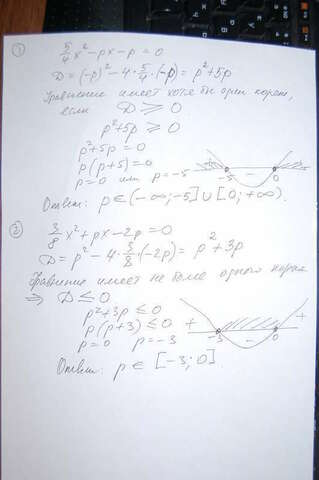 ①
5/4 x² - px - p = 0
D = (-p)² - 4 · 5/4 · (-p) = p² + 5p
Уравнение имеет хотя бы один корень,
если D ≥ 0
p² + 5p ≥ 0
p² + 5p = 0
p(p+5) = 0
p = 0 или p = -5
-5 - 0
Ответ: p ∈ (-∞; -5] ∪ [0; +∞).
②
3/8 x² + px - 2p = 0
D = p² - 4 · 3/8 · (-2p) = p² + 3p
Уравнение имеет не более одного корня
⇒ D ≤ 0
p² + 3p ≤ 0
p(p+3) ≤ 0
p = 0 p = -3
+ - +
0
Ответ: p ∈ [-3; 0]